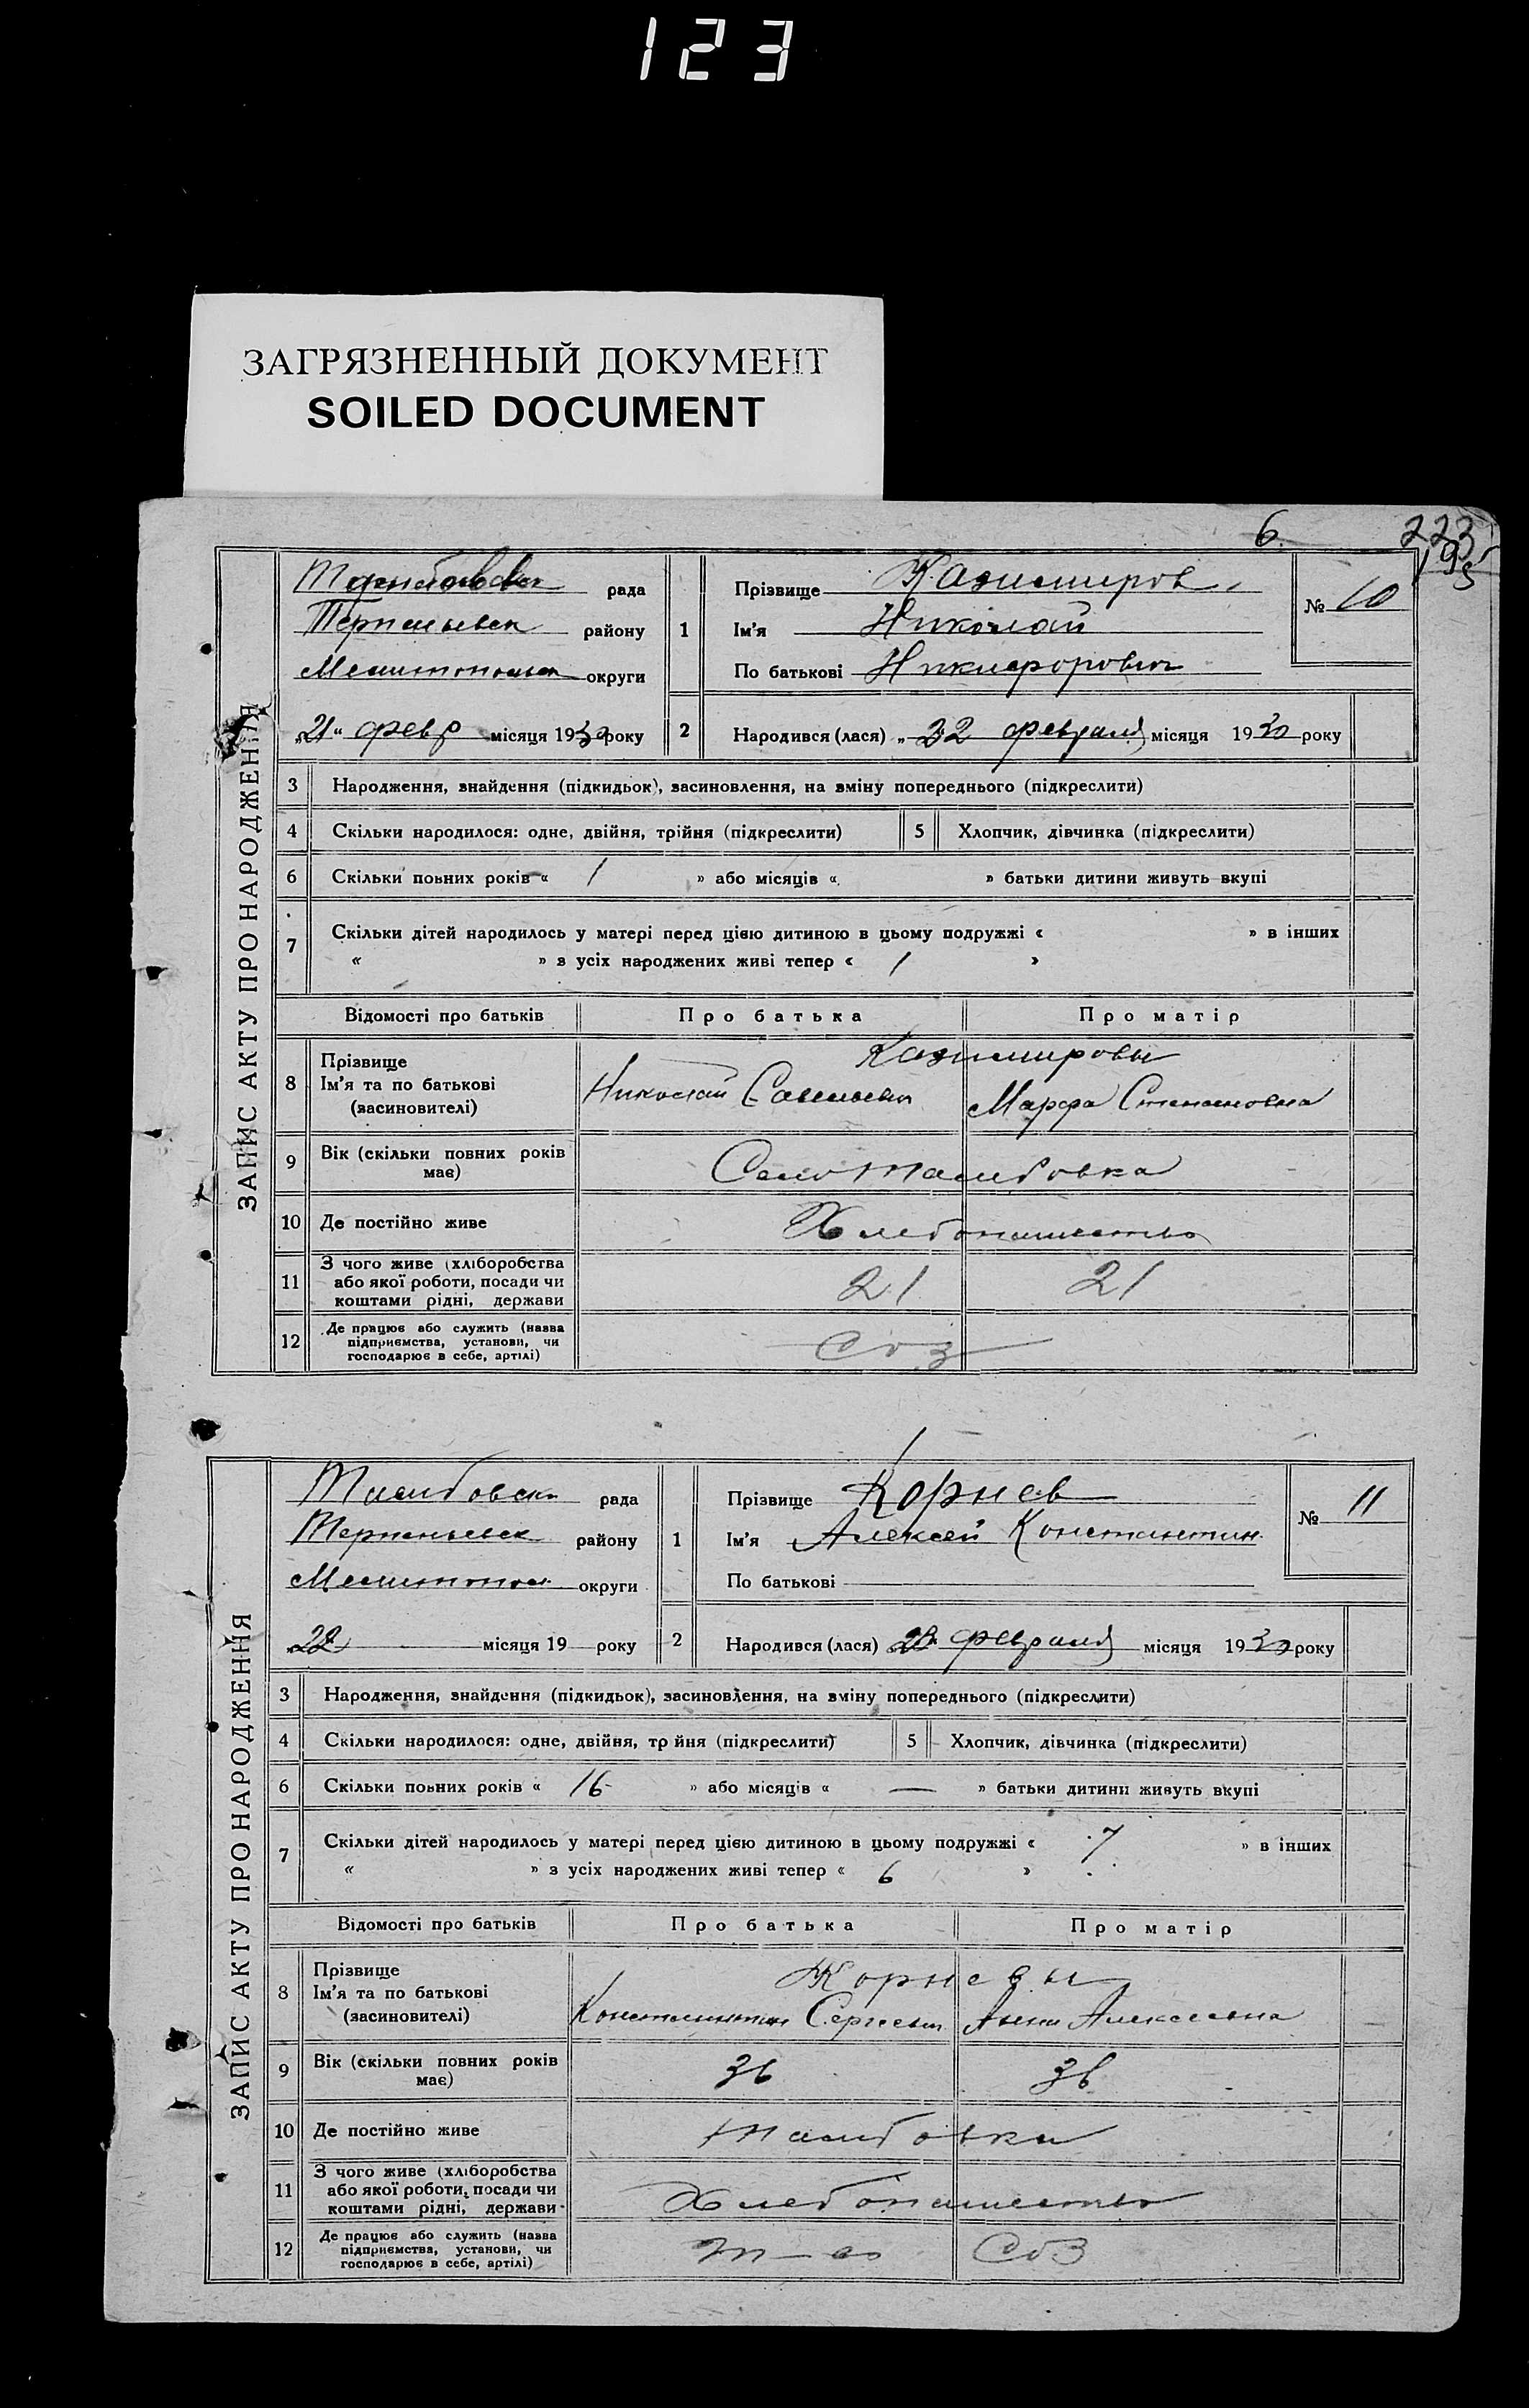 123
ЗАГРЯЗНЕННЫЙ ДОКУМЕНТ
SOILED DOCUMENT
6.
223
193
ЗАПИС АКТУ ПРО НАРОДЖЕННЯ
рада
району
округи
„21“ февр місяця 1930 року
1
Прізвище Казимиров
Ім'я Николай
По батькові Никифорович
№ 10
2
Народився (лася) „ февраля місяця 1930 року
3 Народження, знайдення (підкидьок), засиновлення, на вміну попереднього (підкреслити)
4 Скільки народилося: одне, двійня, трійня (підкреслити)
5 Хлопчик, дівчинка (підкреслити)
6 Скільки повних років « 1 » або місяців « » батьки дитини живуть вкупі
7 Скільки дітей народилось у матері перед цією дитиною в цьому подружжі « » в інших
« » з усіх народжених живі тепер « 1 »
Відомості про батьків Про батька Про матір
8 Прізвище
Ім'я та по батькові
(засиновителі)
Казимировы
Николай Савельевич Марфа Степановна
9 Вік (скільки повних років
має)
Село Талибовка
10 Де постійно живе
Хлебопашество
11 З чого живе (хліборобства
або якої роботи, посади чи
коштами рідні, держави
21 21
12 Де працює або служить (назва
підприємства, установи, чи
господарює в себе, артілі)
Соз
ЗАПИС АКТУ ПРО НАРОДЖЕННЯ
рада
району
Мелитопол округи
22 місяця 19 року
1
Прізвище Корнев
Ім'я Алексей Константин
По батькові
№ 11
2
Народився (лася) февраля місяця 1930 року
3 Народження, знайдення (підкидьок), засиновлення, на вміну попереднього (підкреслити)
4 Скільки народилося: одне, двійня, трійня (підкреслити)
5 Хлопчик, дівчинка (підкреслити)
6 Скільки повних років « 16 » або місяців « — » батьки дитини живуть вкупі
7 Скільки дітей народилось у матері перед цією дитиною в цьому подружжі « 7 » в інших
« » з усіх народжених живі тепер « 6 »
Відомості про батьків Про батька Про матір
8 Прізвище
Ім'я та по батькові
(засиновителі)
Корневы
Константин Сергеевич Анна Алексеевна
9 Вік (скільки повних років
має)
36 36
10 Де постійно живе
Талибовка
11 З чого живе (хліборобства
або якої роботи, посади чи
коштами рідні, держави
Хлебопашество
12 Де працює або служить (назва
підприємства, установи, чи
господарює в себе, артілі)
т-во Соз